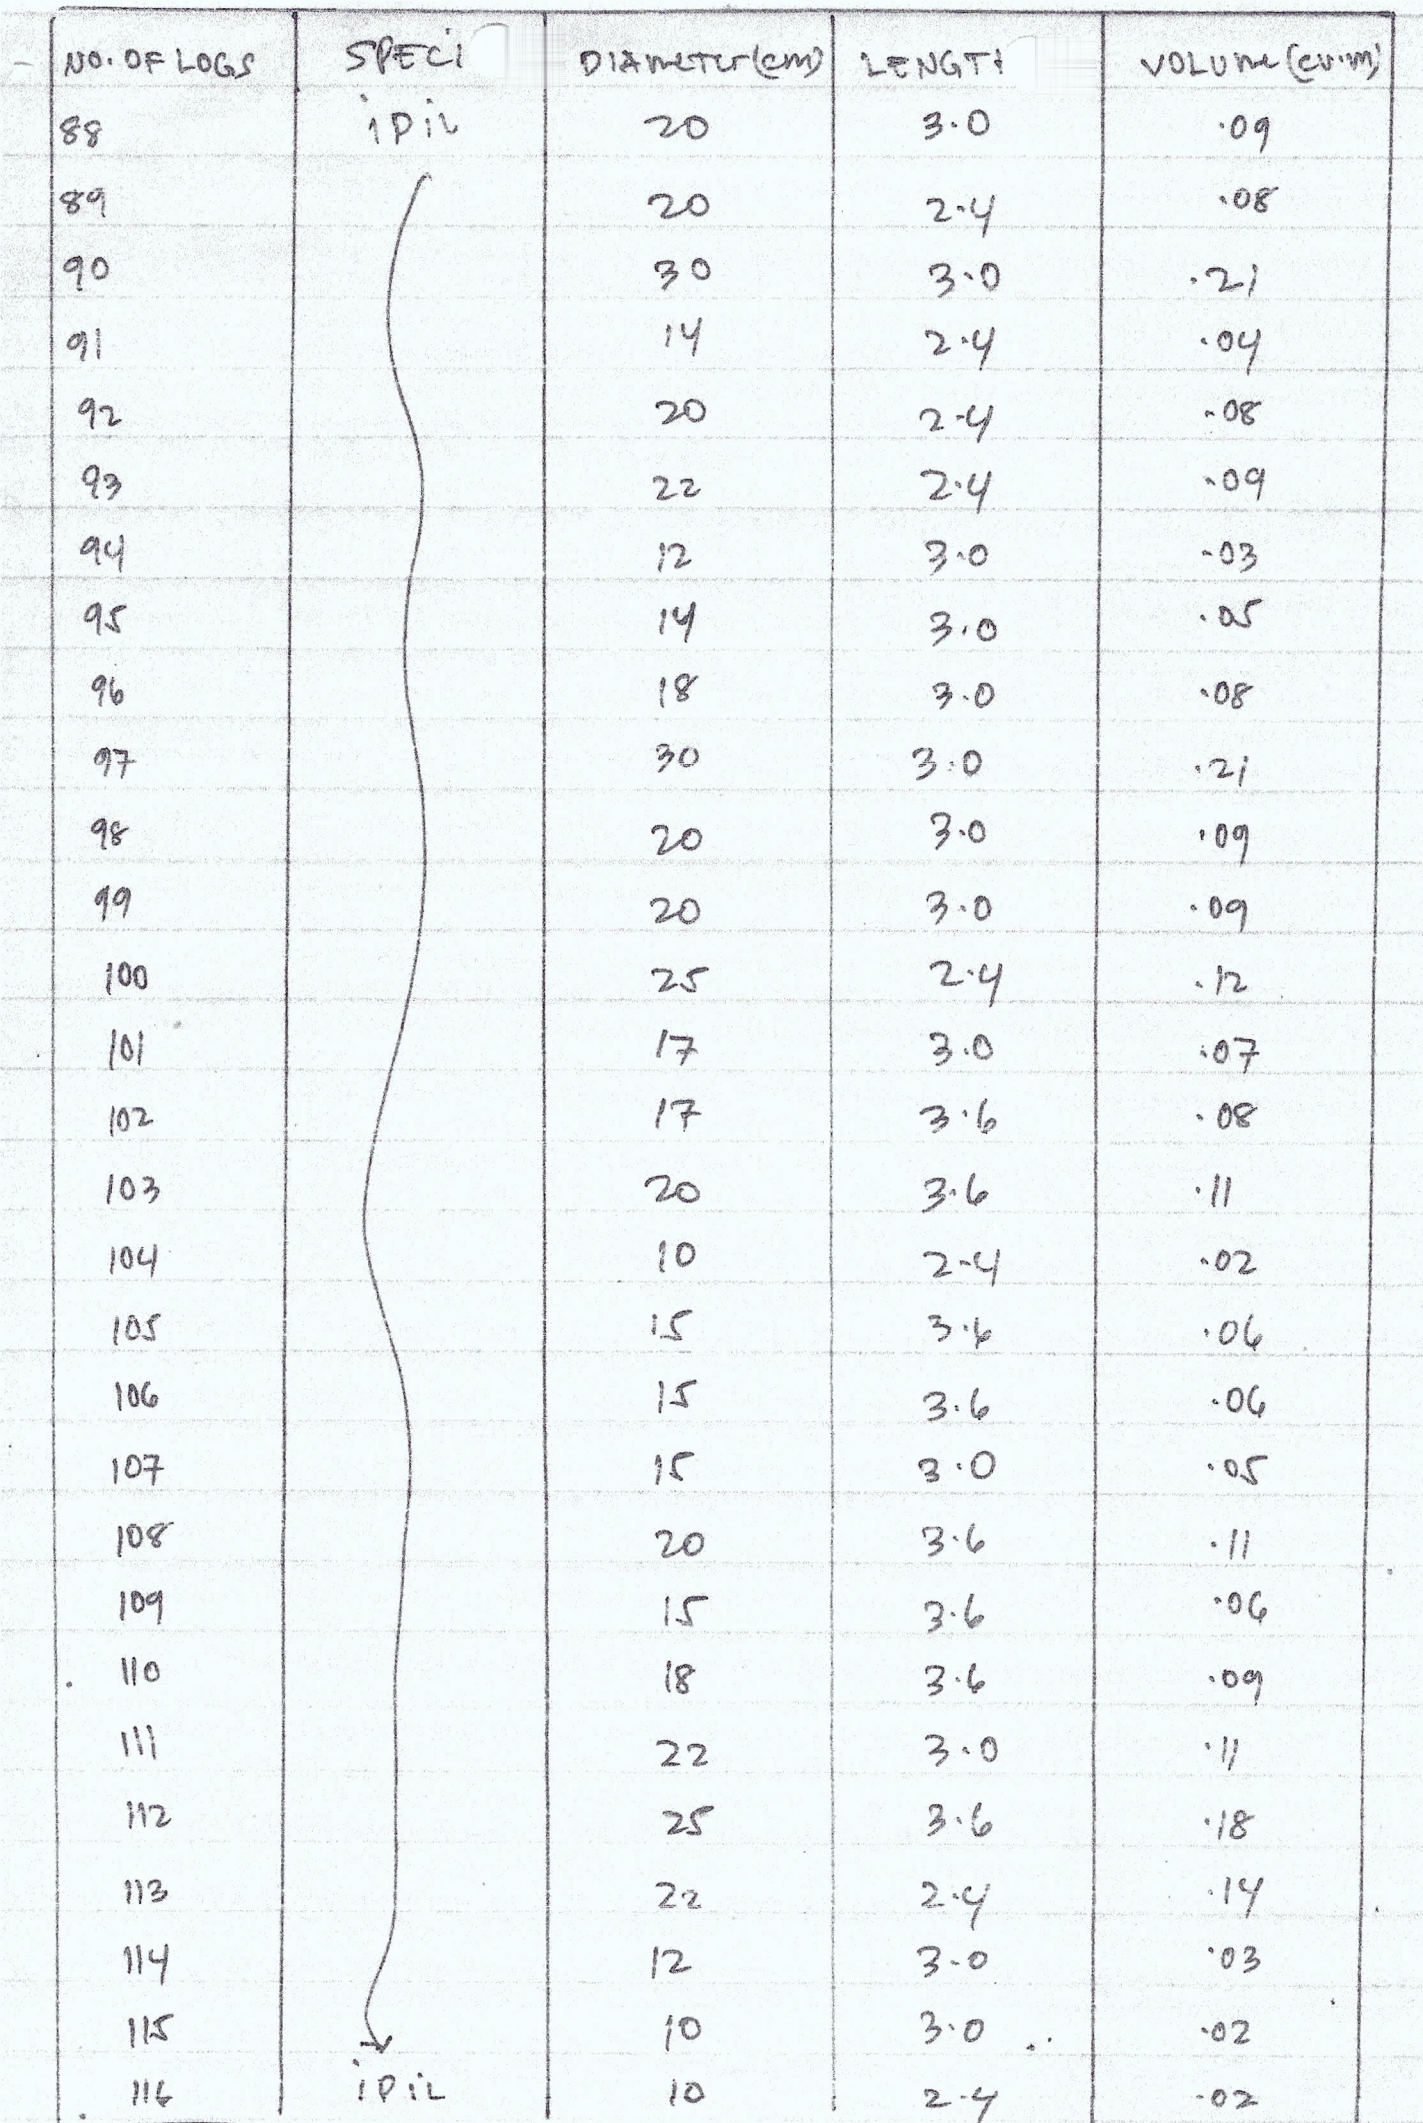 NO. OF LOGS SPECI DIAMETER (cm) LENGTH VOLUME (cu.m)
88 ipil 20 3.0 .09
89 20 2.4 .08
90 30 3.0 .21
91 14 2.4 .04
92 20 2.4 .08
93 22 2.4 .09
94 12 3.0 .03
95 14 3.0 .05
96 18 3.0 .08
97 30 3.0 .21
98 20 3.0 .09
99 20 3.0 .09
100 25 2.4 .12
101 17 3.0 .07
102 17 3.6 .08
103 20 3.6 .11
104 10 2.4 .02
105 15 3.6 .06
106 15 3.6 .06
107 15 3.0 .05
108 20 3.6 .11
109 15 3.6 .06
110 18 3.6 .09
111 22 3.0 .11
112 25 3.6 .18
113 22 2.4 .14
114 12 3.0 .03
115 10 3.0 .02
116 ipil 10 2.4 .02